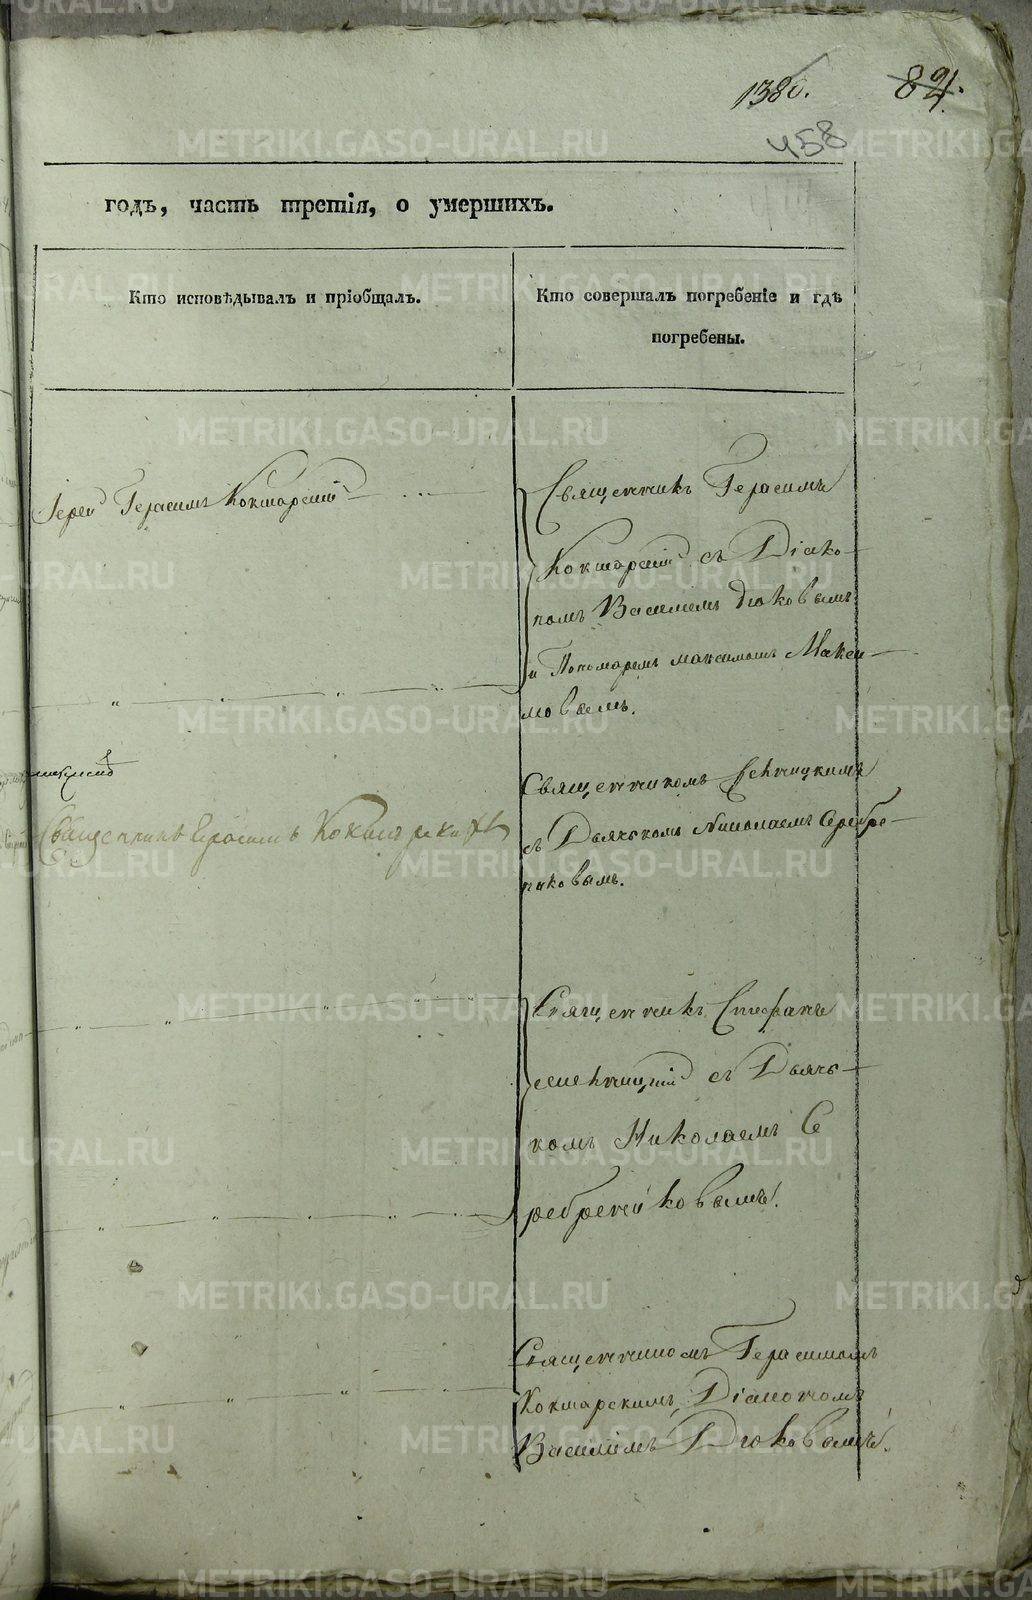 1380. 82.
458
годъ, часть третія, о умершихъ.
Кто исповѣдывалъ и пріобщалъ.
Кто совершалъ погребеніе и гдѣ
погребены.
Іерей Герасимъ Кокшарскій
Священникъ Герасимъ
Кокшарскій съ Діако-
номъ Василіемъ Дюковымъ
и Пономаремъ Максимомъ Макси-
мовымъ.
Священникъ Герасимъ Кокшарскій
Священникомъ
съ Дьячкомъ Николаемъ Серебре-
никовымъ.
Священникъ Стефанъ
съ Дьяч-
комъ Николаемъ Се
ребрениковымъ.
Священникомъ Герасимомъ
Кокшарскимъ, Діакономъ
Василіемъ Дюковымъ.
METRIKI.GASO-URAL.RU